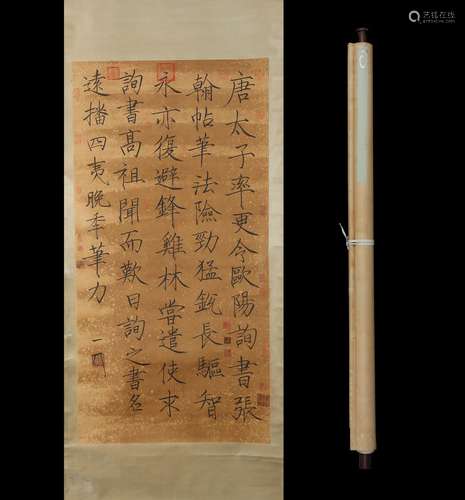 唐太子率更令歐陽詢書張
翰帖筆法險勁猛銳長驅智
永亦復避鋒雞林嘗遣使求
詢書髙祖聞而歎曰詢之書名
遠播四夷晚年筆力
艺狐在线